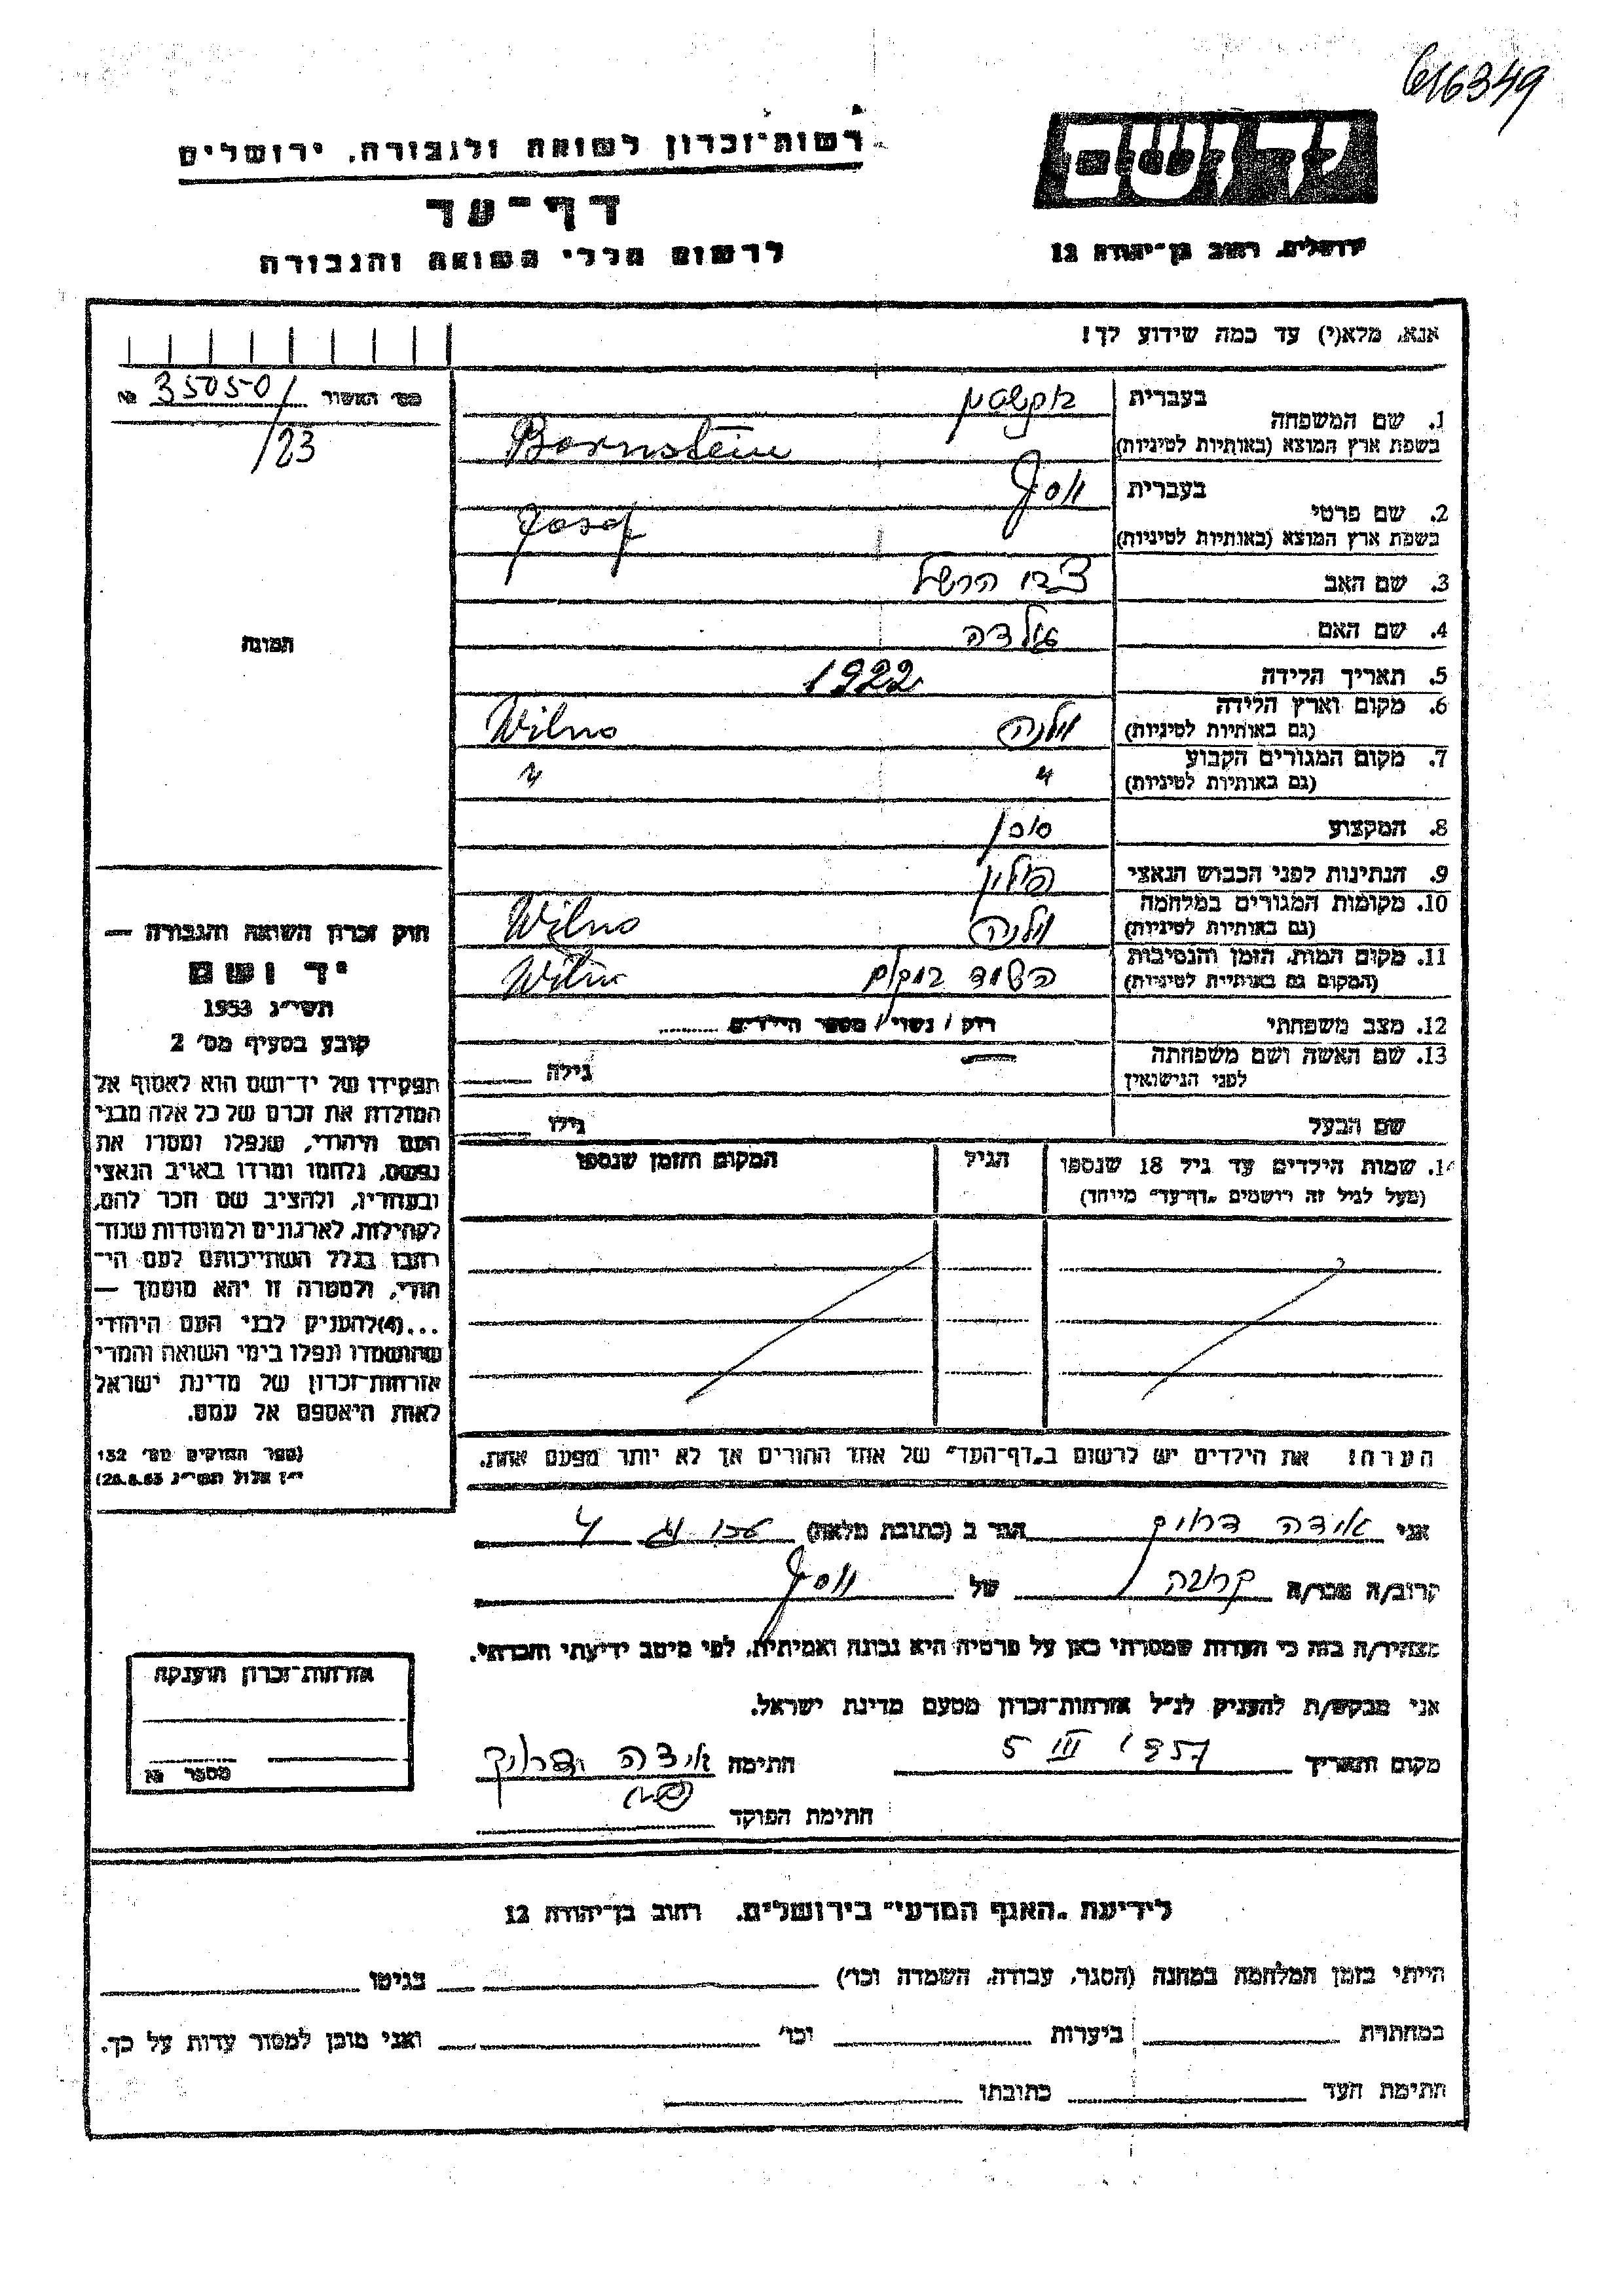 616349
רשות־זכרון לשואה ולגבורה, ירושלים
יד ושם
דף־עד
ירושלים, רחוב בן־יהודה 12
לרשום חללי השואה והגבורה
אנא, מלא(י) עד כמה שידוע לך!
מס׳ האשור 35050/ №
/23
1. שם המשפחה
בעברית
בשפת ארץ המוצא (באותיות לטיניות) Bornstein
2. שם פרטי
בעברית יוסף
בשפת ארץ המוצא (באותיות לטיניות) Josef
3. שם האב צבי הרשל
4. שם האם
5. תאריך הלידה 1922
6. מקום וארץ הלידה
(גם באותיות לטיניות) וילנה Wilno
7. מקום המגורים הקבוע
(גם באותיות לטיניות) " "
8. המקצוע סוכן
9. הנתינות לפני הכבוש הנאצי פולין
10. מקומות המגורים במלחמה
(גם באותיות לטיניות) וילנה Wilno
11. מקום המות, הזמן והנסיבות
(המקום גם באותיות לטיניות) Wilno
12. מצב משפחתי רווק / נשוי / מספר הילדים
13. שם האשה ושם משפחתה
לפני הנישואין — גילה
שם הבעל גילו
14. שמות הילדים עד גיל 18 שנספו הגיל המקום והזמן שנספו
(מעל לגיל זה רושמים „דף־עד” מיוחד)
הערה: את הילדים יש לרשום ב„דף־העד” של אחד ההורים אך לא יותר מפעם אחת.
תמונה
חוק זכרון השואה והגבורה —
יד ושם
תשי״ג 1953
קובע בסעיף מס׳ 2
תפקידו של יד־ושם הוא לאסוף אל
המולדת את זכרם של כל אלה מבני
העם היהודי, שנפלו ומסרו את
נפשם, נלחמו ומרדו באויב הנאצי
ובעוזריו, ולהציב שם וזכר להם,
לקהילות, לארגונים ולמוסדות שנח־
רבו בגלל השתייכותם לעם הי־
הודי, ולמטרה זו יהא מוסמך —
...(4) להעניק לבני העם היהודי
שהושמדו ונפלו בימי השואה והמרי
אזרחות־זכרון של מדינת ישראל
לאות היאספם אל עמם.
(ספר החוקים מס׳ 132
י״ז אלול תשי״ג 28.8.53)
אני אידה הגר ב (כתובת מלאה)
קרוב/ה מכר/ה קרובה של יוסף
מצהיר/ה בזה כי העדות שמסרתי כאן על פרטיה היא נכונה ואמיתית, לפי מיטב ידיעתי והכרתי.
אני מבקש/ת להעניק לנ״ל אזרחות־זכרון מטעם מדינת ישראל.
מקום ותאריך 5 III 1957 חתימה אידה
חתימת הפוקד
אזרחות־זכרון הוענקה
מספר №
לידיעת „האגף המדעי” בירושלים, רחוב בן־יהודה 12
הייתי בזמן המלחמה במחנה (הסגר, עבודה, השמדה וכו׳) בגיטו
במחתרת ביערות וכו׳ ואני מוכן למסור עדות על כך.
חתימת העד כתובתו